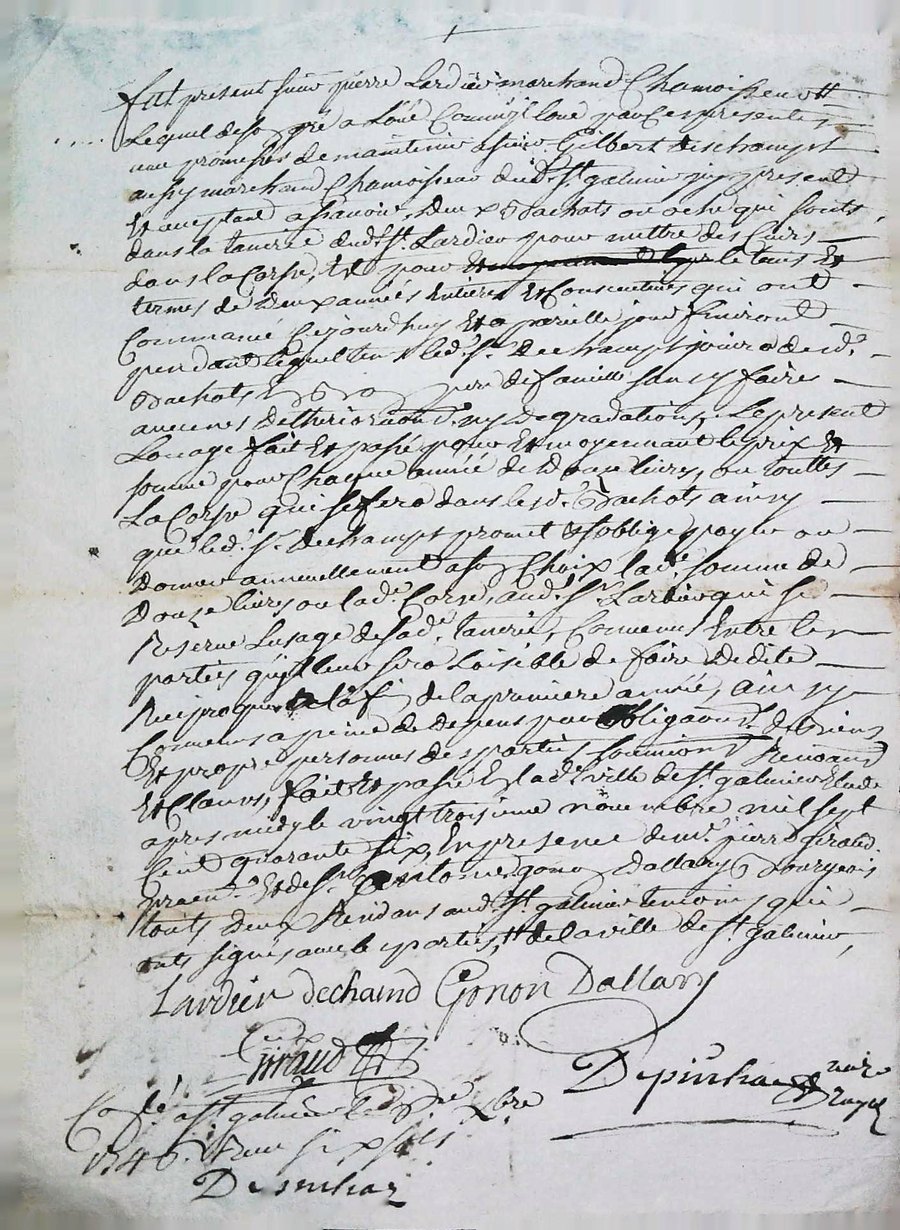 fut present sieur pierre Lardier marchand Chamoisseur tt
Lequel de so gré a Loüé Comme jl loue par ces presentes
avec promesses de maintenir a sieur Gilbert deschamps
aussy marchand Chamoisseur dud. St galmier jcy present
Et aceptant a savoir, deux Bachats ou oche qui sonts
dans la tanerie dud. Sr. Lardier pour mettre des Cuirs
dans la Corse, Et pour le tems Et
termes de deux années Entieres Et Consecutives qui ont
Commancé Cejourdhuy Et a pareille jour finiront
pendant lequel tems led. Sr. Dechamps jouira desd.
Bachats En bon pere de famille sans y faires
aucunes Detheriorations, ny Degradations, Le present
Loüage fait Et passé pour Et moyennant le prix Et
somme pour Chaque année de Douze livres, ou touttes
La Corse qui se fera dans lesd. Bachats ainsy
que led. Sr. Dechamps promet Et soblige payer ou
Donner annuellement a so Choix lad. somme de
Douze livres ou lad. Corse, aud. Sr. Lardier qui se
Reserve Lusage de sad. tanerie, Convenus Entre les
parties qu'jl leur sera Loisible de faire Dedite
Reciproque a la fi de la premiere année, ainsy
Convenus a peine de Depens par obligations de Biens
Et propre personnes des parties soumions Renoons
Et Clauses, fait Et passé En lad. ville de St. galmier Etude
apres midy le vingt troisieme novembre mil sept
Cent quarante six, En presence de mr. pierre Giraud
praen. Et de Sr. antoine gonon Dallary Bourgeois
touts deux Residans aud. St. galmier temoins qui
onts signés avec les parties, tt de la ville de St. galmier,
Lardier dechamd Gonon Dallary
Giraud
Depinhac nore Royal
Colé a St galmier le Xbre
1746. Reçu six sols
Depinhac